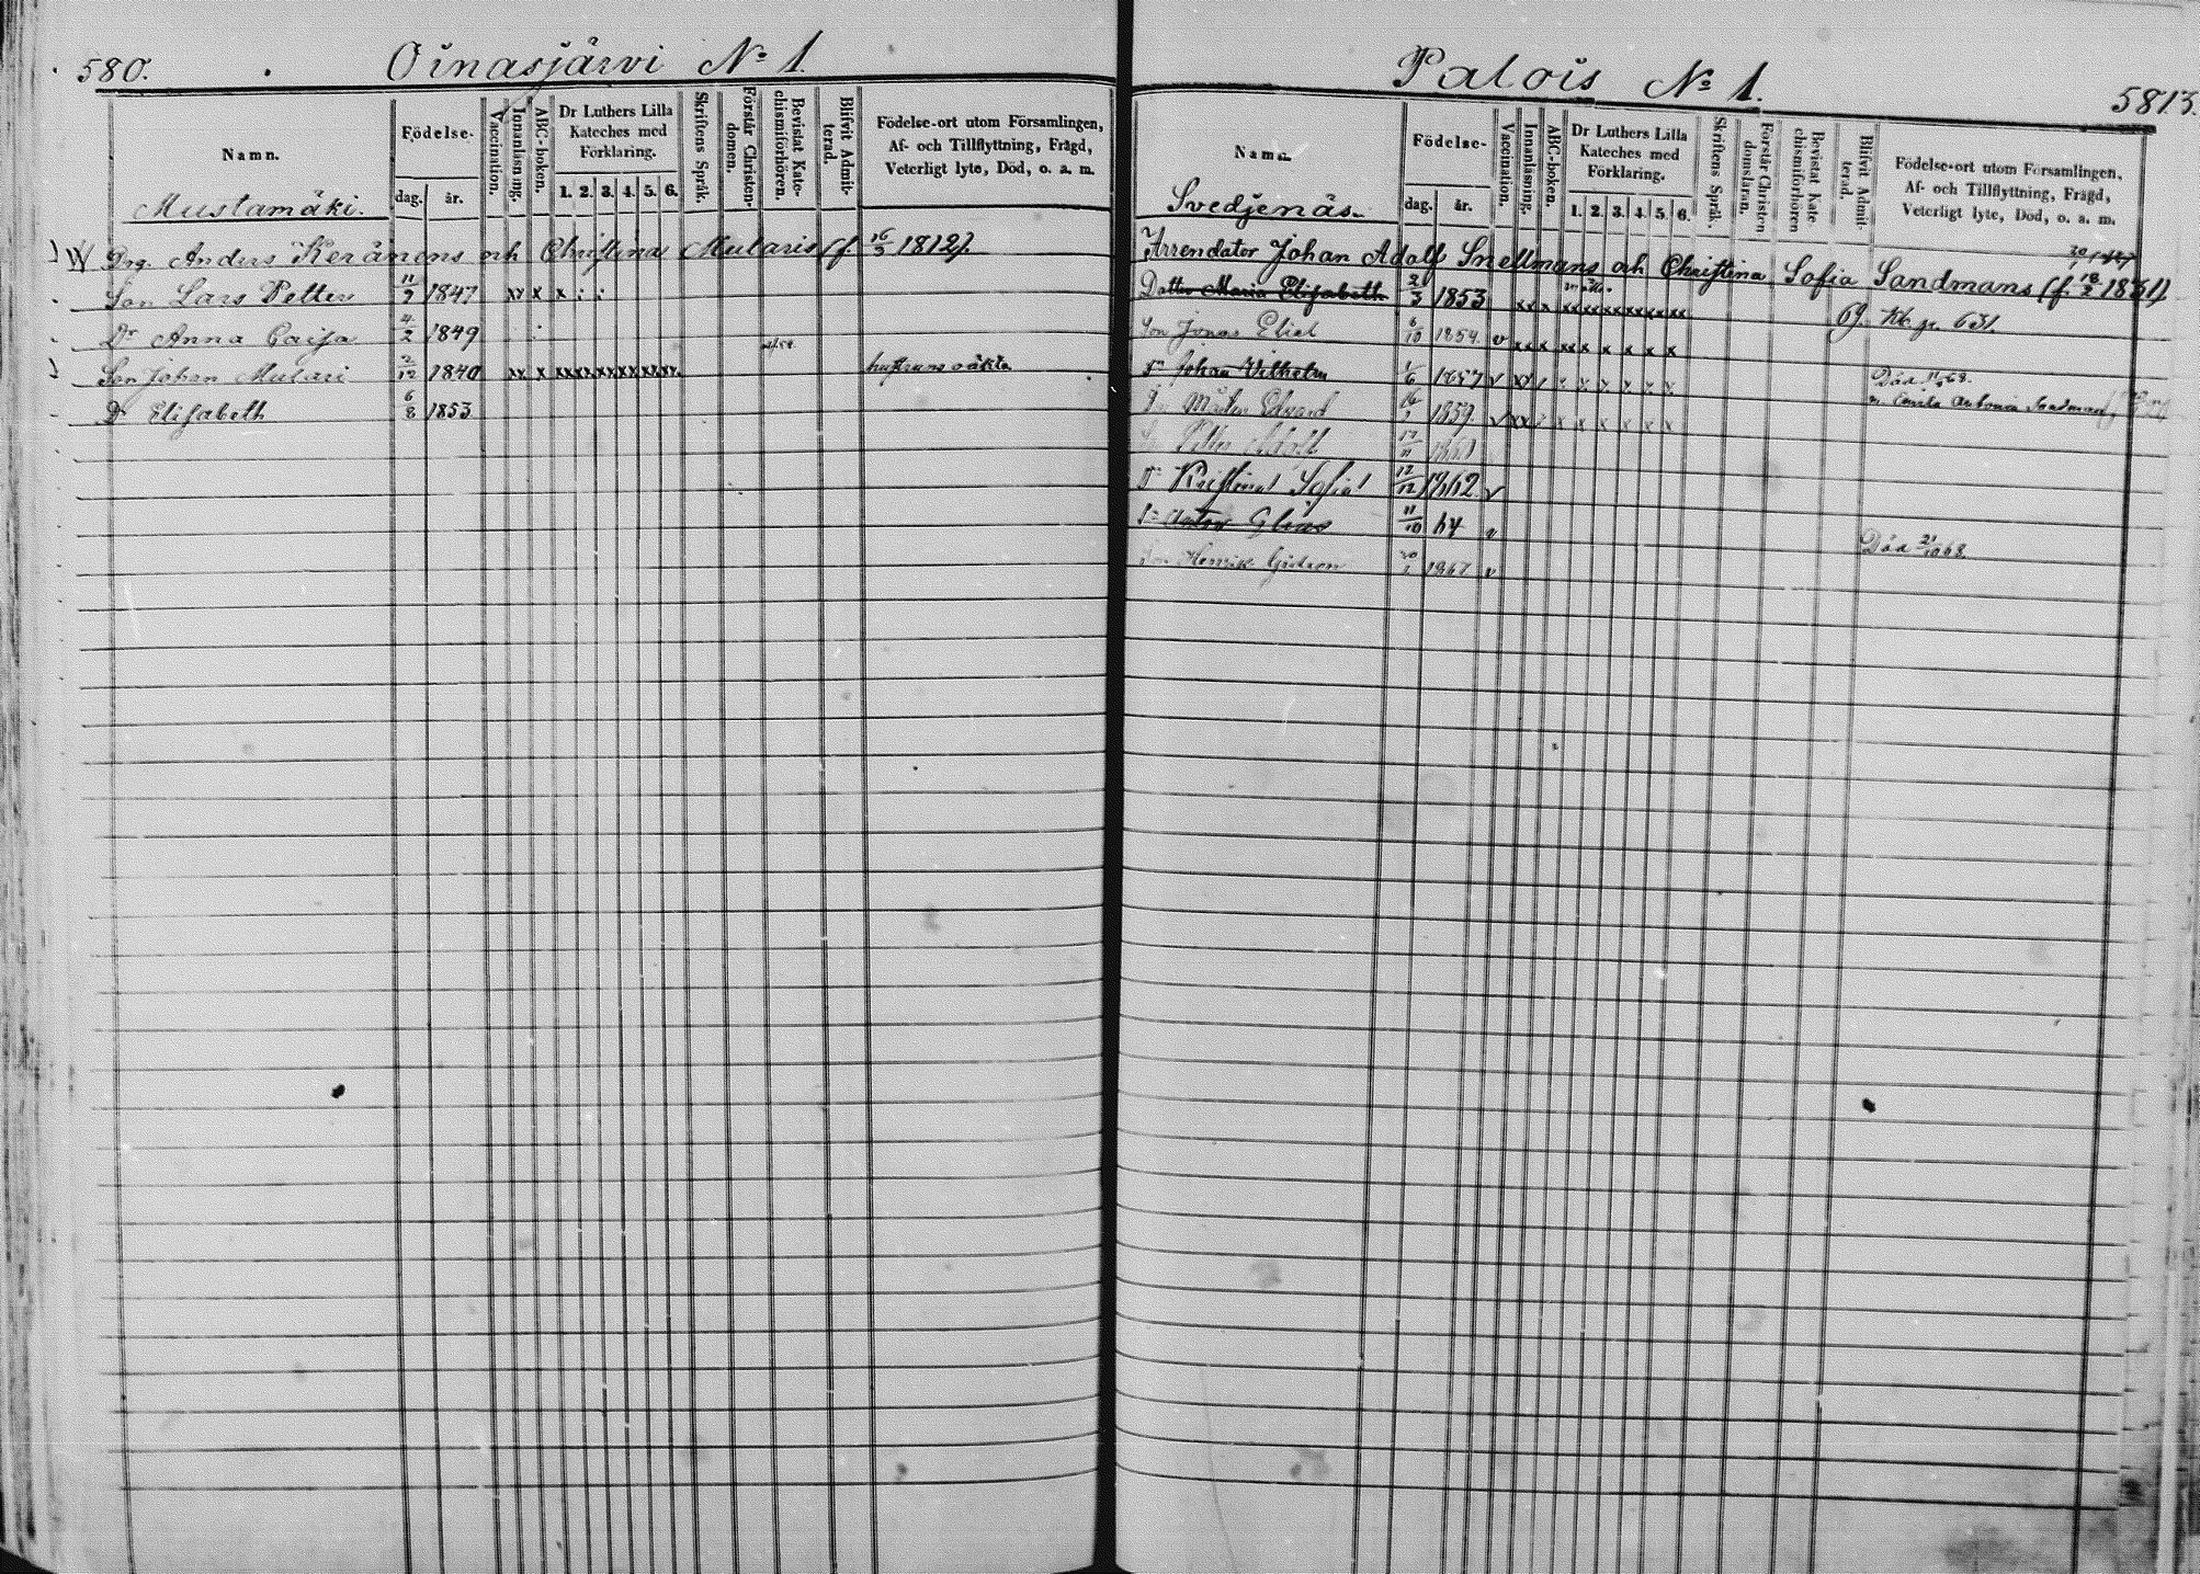 580.
Oinasjärvi No 1.
Namn.
Födelse-
dag.
år.
Vaccination.
Innanläsning.
ABC-boken.
Dr Luthers Lilla
Kateches med
Förklaring.
1. 2. 3. 4. 5. 6.
Skriftens Språk.
Förstår Christen-
domen.
Bevistat Kate-
chismiförhören.
Blifvit Admit-
terad.
Födelse-ort utom Församlingen,
Af- och Tillflyttning, Frägd,
Veterligt lyte, Död, o. a. m.
Mustamäki.
Drg. Anders Keränens och Christina Mularis (f. 16/3 1812).
Son Lars Petter 11/9 1847 xx x x
Dr Anna Caisa 4/2 1849
Son Johan Mulari 2/12 1840 xx x xx xx xx xx xx xx hustruns oäkta
Dr Elisabeth 6/8 1853
Palois No 1.
5813.
Namn.
Födelse-
dag.
år.
Vaccination.
Innanläsning.
ABC-boken.
Dr Luthers Lilla
Kateches med
Förklaring.
1. 2. 3. 4. 5. 6.
Skriftens Språk.
Förstår Christen
domslaran.
Bevistat Kate
chismiförhören
Blifvit Admit-
terad.
Födelse-ort utom Församlingen,
Af- och Tillflyttning, Frägd,
Veterligt lyte, Död, o. a. m.
Svedjenäs.
Arrendator Johan Adolf Snellmans och Christina Sofia Sandmans (f. 18/2 1831)
Dotter Maria Elisabeth 2/3 1853 xx x xx xx xx xx xx xx 69. Kb. p. 631.
Son Jonas Eliel 6/10 1854. v xx x xx x x x x x
Sn Johan Vilhelm 1/6 1857 v xx Död
Edvard 1859. v xx Antonia Sandman
Adolf
Dr Kristina Sofia 12/12 1862 v
Sn Anton Elias 11/10 64 v Död 21/10 68
Henrik 20/1 1867 v